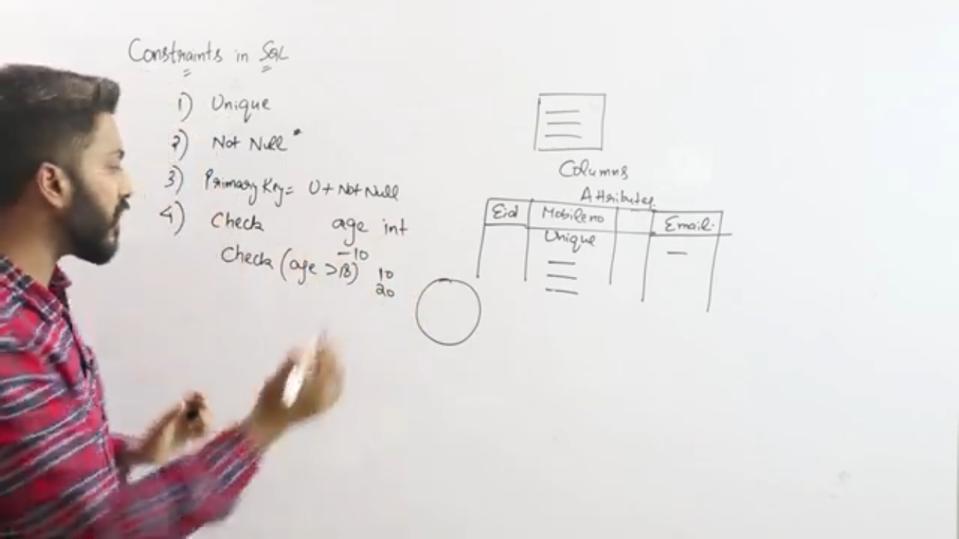 Constraints in SQL
1) Unique
2) Not Null
3) Primary Key = U + Not Null
4) Check age int
-10
Check (age > 18) 10
20
Columns
Attributes
Eid Mobileno Email
Unique